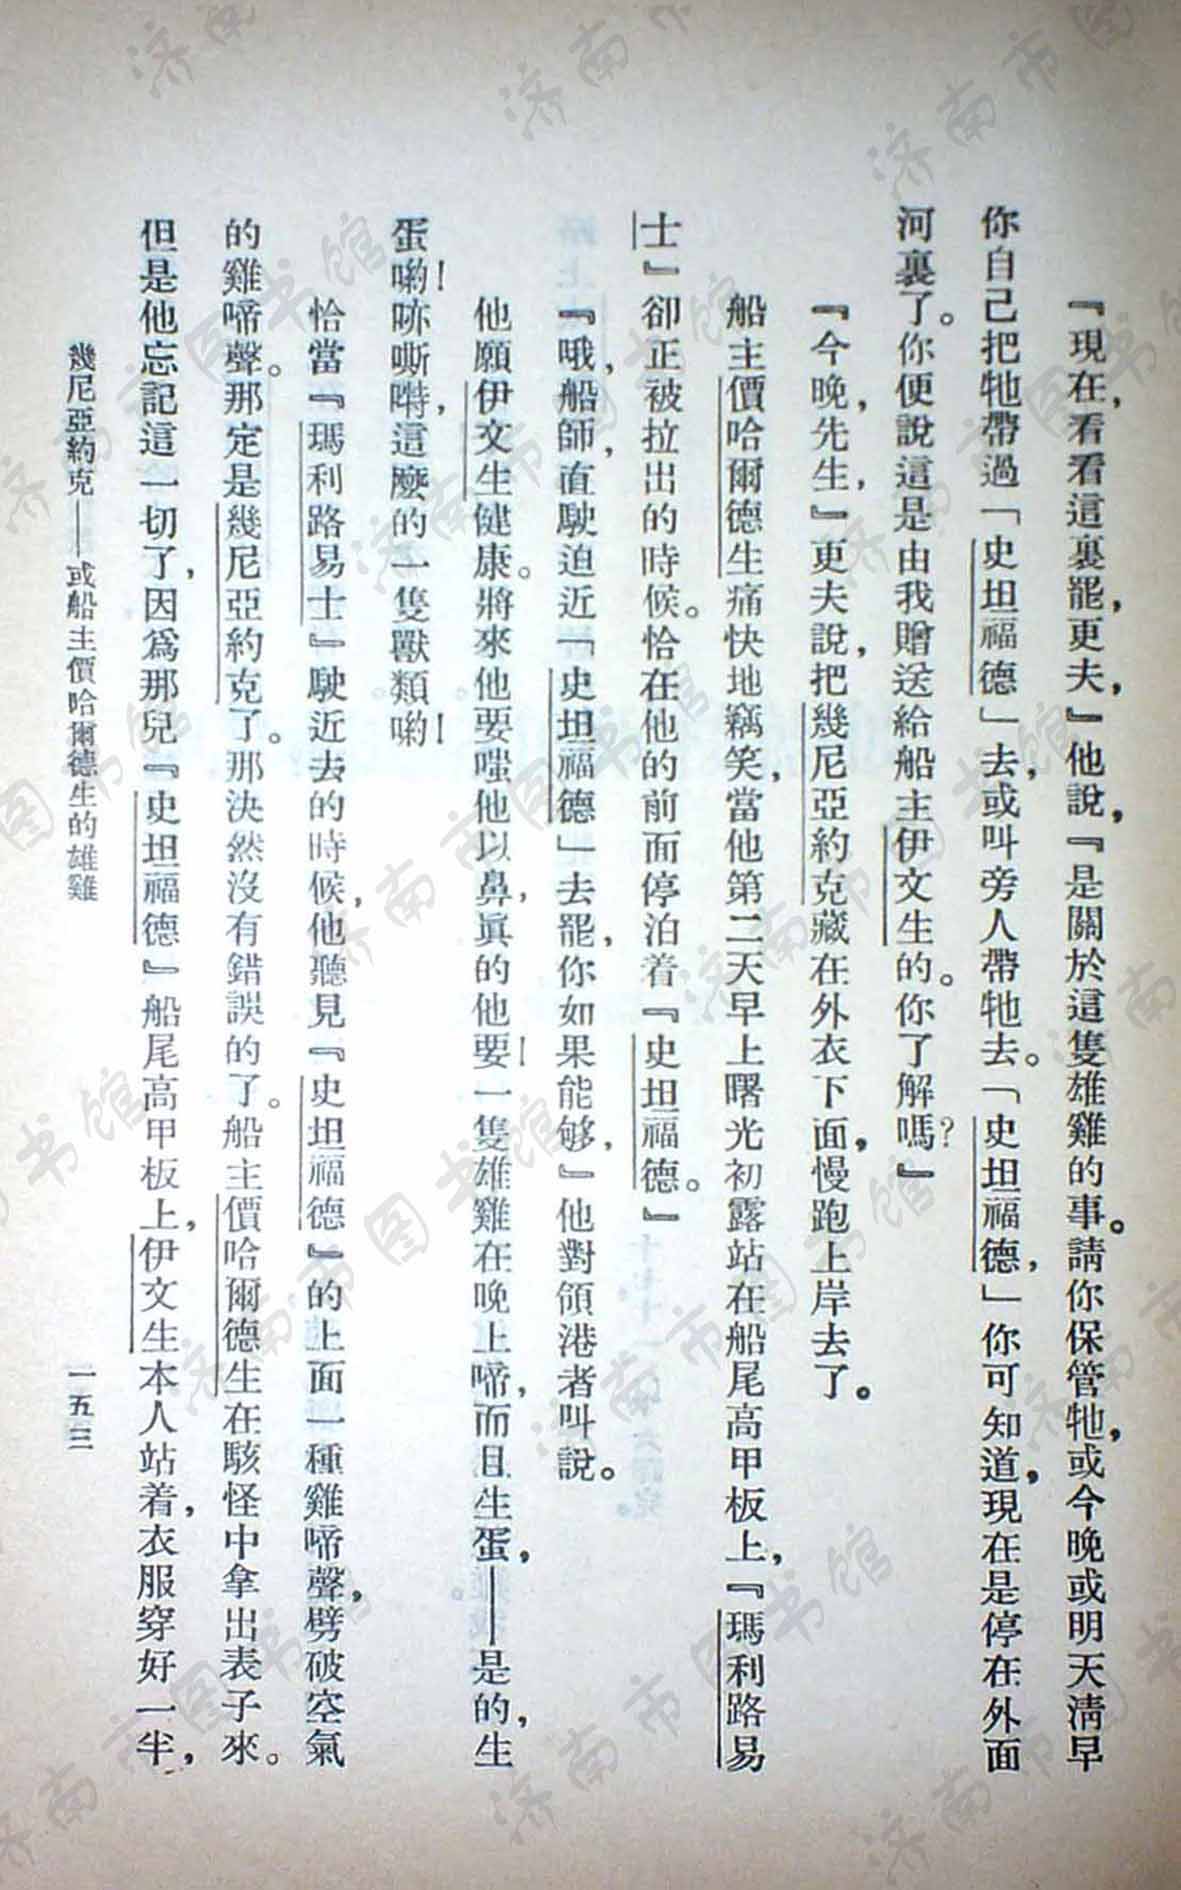 『現在，看看這裏罷，更夫，』他說，『是關於這隻雄雞的事。請你保管牠，或今晚或明天淸早
你自己把牠帶過「史坦福德」去，或叫旁人帶牠去。「史坦福德，」你可知道，現在是停在外面
河裏了。你便說這是由我贈送給船主伊文生的。你了解嗎？』
『今晚，先生，』更夫說，把幾尼亞約克藏在外衣下面，慢跑上岸去了。
船主價哈爾德生痛快地竊笑，當他第二天早上曙光初露站在船尾高甲板上，『瑪利路易
士』卻正被拉出的時候。恰在他的前面停泊着『史坦福德。』
『哦，船師，直駛迫近「史坦福德」去罷，你如果能够，』他對領港者叫說。
他願伊文生健康。將來他要嗤他以鼻，眞的他要！一隻雄雞在晚上啼，而且生蛋，——是的，生
蛋喲！哧嘶嘚，這麼的一隻獸類喲！
恰當『瑪利路易士』駛近去的時候，他聽見『史坦福德』的上面一種雞啼聲，劈破空氣
的雞啼聲。那定是幾尼亞約克了。那決然沒有錯誤的了。船主價哈爾德生在駭怪中拿出表子來。
但是他忘記這一切了，因爲那兒『史坦福德』船尾高甲板上，伊文生本人站着，衣服穿好一半，
幾尼亞約克——或船主價哈爾德生的雄雞
一五三
济南市图书馆